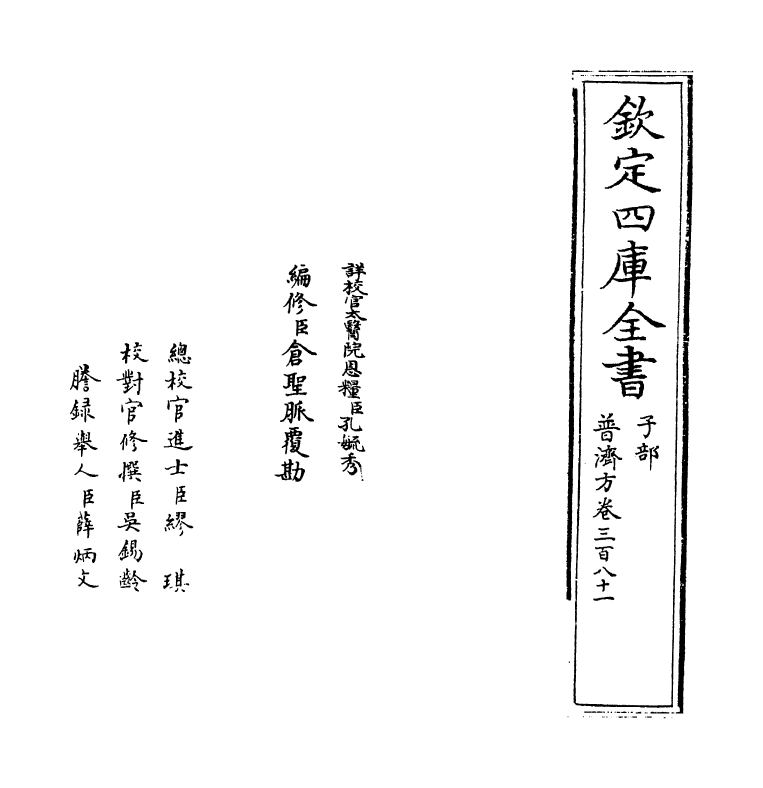 欽定四庫全書
子部
普濟方卷三百八十一
詳校官太醫院恩糧臣孔毓秀
編修臣倉聖脈覆勘
總校官進士臣繆琪
校對官修撰臣吳錫齡
謄録舉人臣薛炳文